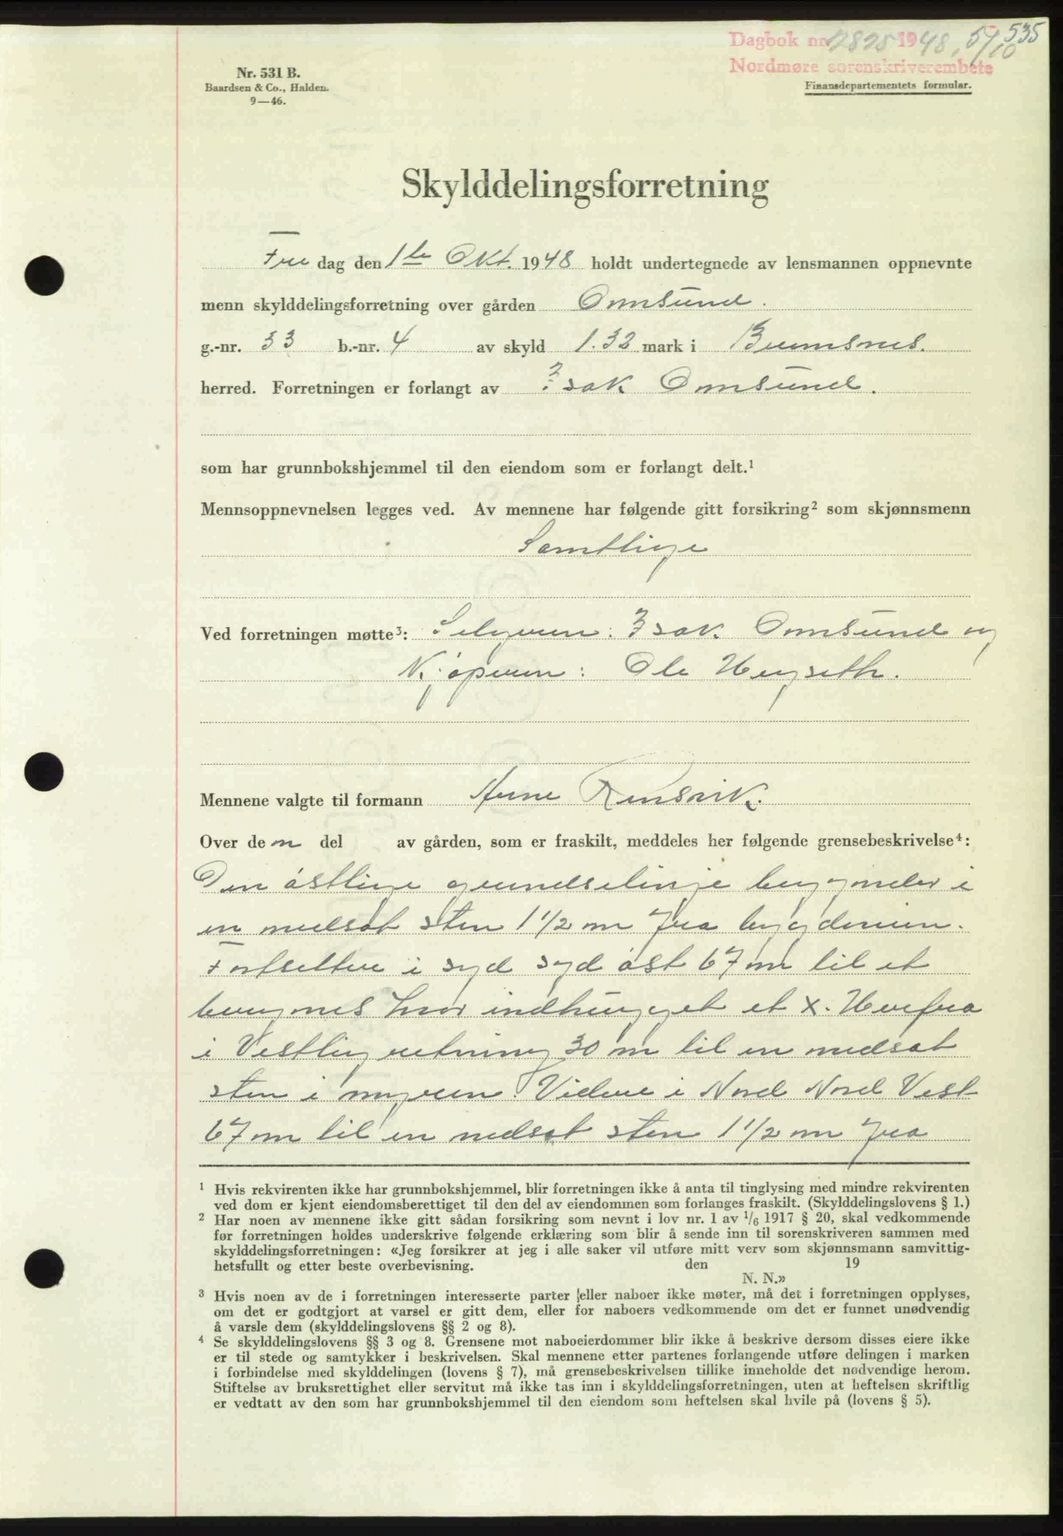 535
Dagbok nr. 2825 1948. 5/10
Nordmøre sorenskriverembete
Finansdepartementets formular.
Nr. 531 B.
Baardsen & Co., Halden.
9—46.
Skylddelingsforretning
Fre dag den 1ste Okt. 1948 holdt undertegnede av lensmannen oppnevnte
menn skylddelingsforretning over gården Omsund.
g.-nr. 33 b.-nr. 4 av skyld 1.32 mark i Bremsnes.
herred. Forretningen er forlangt av Isak Omsund.
som har grunnbokshjemmel til den eiendom som er forlangt delt.¹
Mennsoppnevnelsen legges ved. Av mennene har følgende gitt forsikring² som skjønnsmenn
Samtlige
Ved forretningen møtte³: Selgeren: Isak Omsund og
Kjøperen: Ole Heyseth.
Mennene valgte til formann Arne Rensvik.
Over den del av gården, som er fraskilt, meddeles her følgende grensebeskrivelse⁴:
Den østlige grundselinje begynder i
en nedsat sten 1 1/2 m fra bygdeveien.
Fortsetter i syd syd øst 67 m til et
bergnes hvor indhugget et x. Herfra
i Vestlig retning 30 m til en nedsat
sten i myren. Videre i Nord Nord Vest
67 m til en nedsat sten 1 1/2 m fra
¹ Hvis rekvirenten ikke har grunnbokshjemmel, blir forretningen ikke å anta til tinglysing med mindre rekvirenten
ved dom er kjent eiendomsberettiget til den del av eiendommen som forlanges fraskilt. (Skylddelingslovens § 1.)
² Har noen av mennene ikke gitt sådan forsikring som nevnt i lov nr. 1 av 1/6 1917 § 20, skal vedkommende
før forretningen holdes underskrive følgende erklæring som blir å sende inn til sorenskriveren sammen med
skylddelingsforretningen: «Jeg forsikrer at jeg i alle saker vil utføre mitt verv som skjønnsmann samvittig-
hetsfullt og etter beste overbevisning. den 19
N. N.»
³ Hvis noen av de i forretningen interesserte parter (eller naboer ikke møter, må det i forretningen opplyses,
om det er godtgjort at varsel er gitt dem, eller for naboers vedkommende om det er funnet unødvendig
å varsle dem (skylddelingslovens §§ 2 og 8).
⁴ Se skylddelingslovens §§ 3 og 8. Grensene mot naboeierdommer blir ikke å beskrive dersom disses eiere ikke
er til stede og samtykker i beskrivelsen. Skal mennene etter partenes forlangende utføre delingen i marken
i forbindelse med skylddelingen (lovens § 7), må grensebeskrivelsen tillike inneholde det nødvendige herom.
Stiftelse av bruksrettighet eller servitut må ikke tas inn i skylddelingsforretningen, uten at heftelsen skriftlig
er vedtatt av den som har grunnbokshjemmel til den eiendom som heftelsen skal hvile på (lovens § 5).